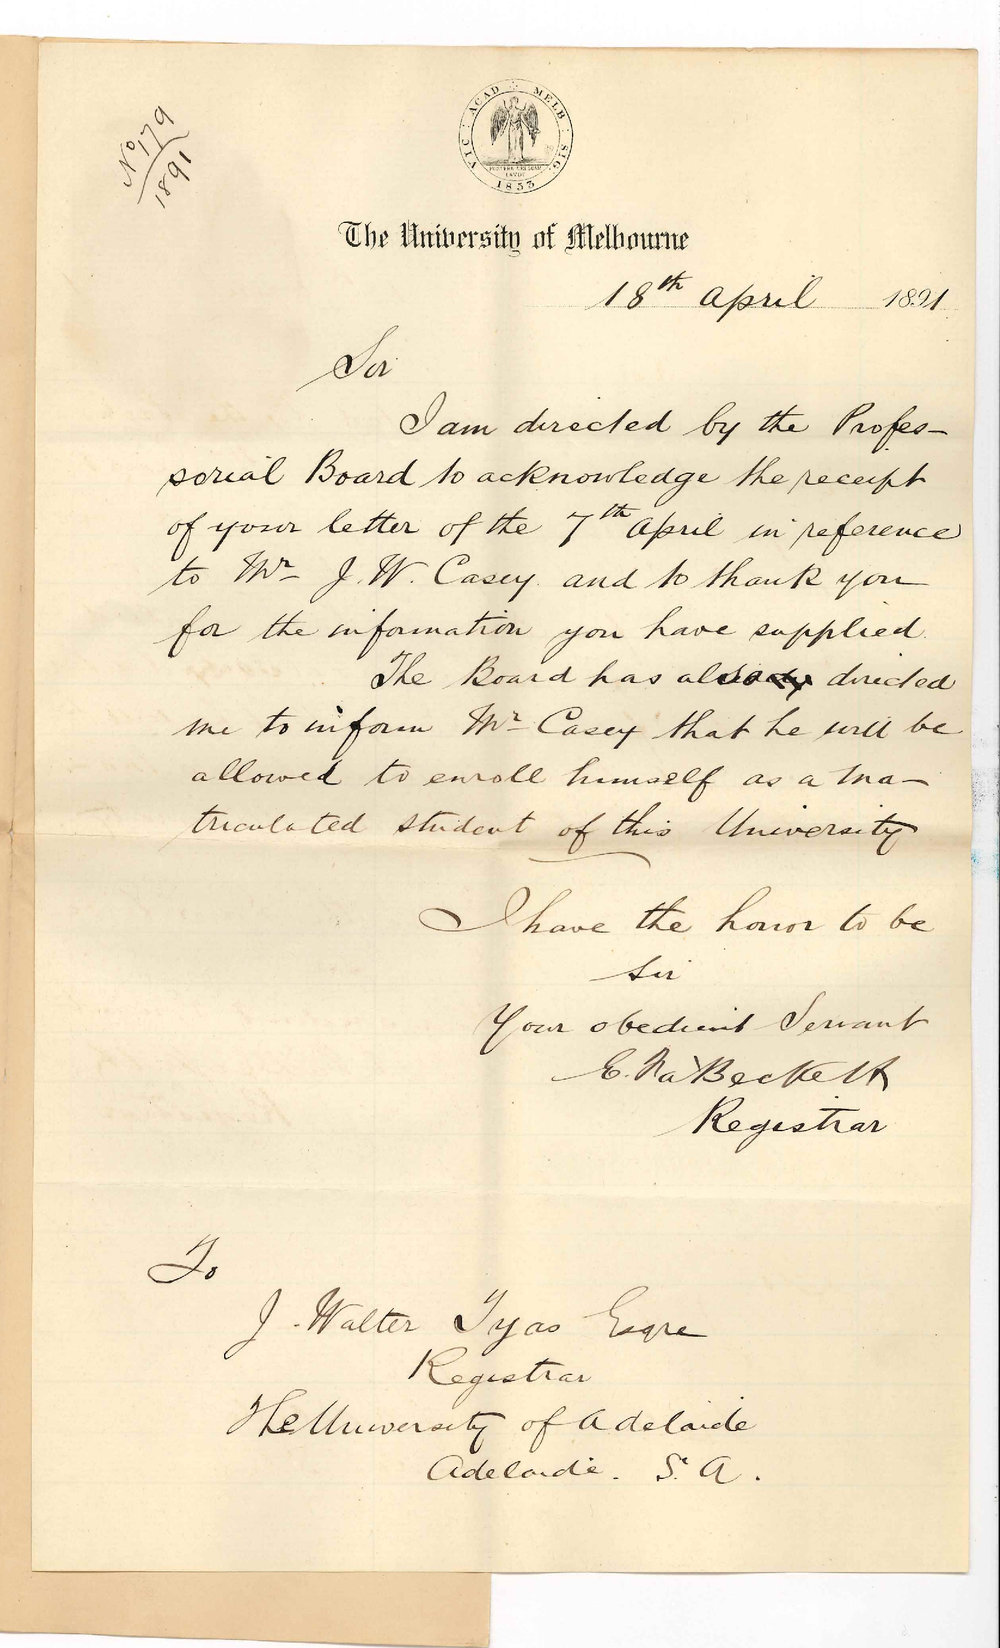 No 179
1891
VIC · ACAD · MELB · SIG
POSTERA CRESCAM
LAUDE
1853
The University of Melbourne
18th April 1891
Sir
I am directed by the Profes-
sorial Board to acknowledge the receipt
of your letter of the 7th April in reference
to Mr J. W. Casey and to thank you
for the information you have supplied.
The Board has already directed
me to inform Mr Casey that he will be
allowed to enroll himself as a Ma-
triculated student of this University
I have the honor to be
Sir
Your obedient Servant
E. F. a'Beckett
Registrar
To
J. Walter Tyas Esqre
Registrar
The University of Adelaide
Adelaide. S. A.